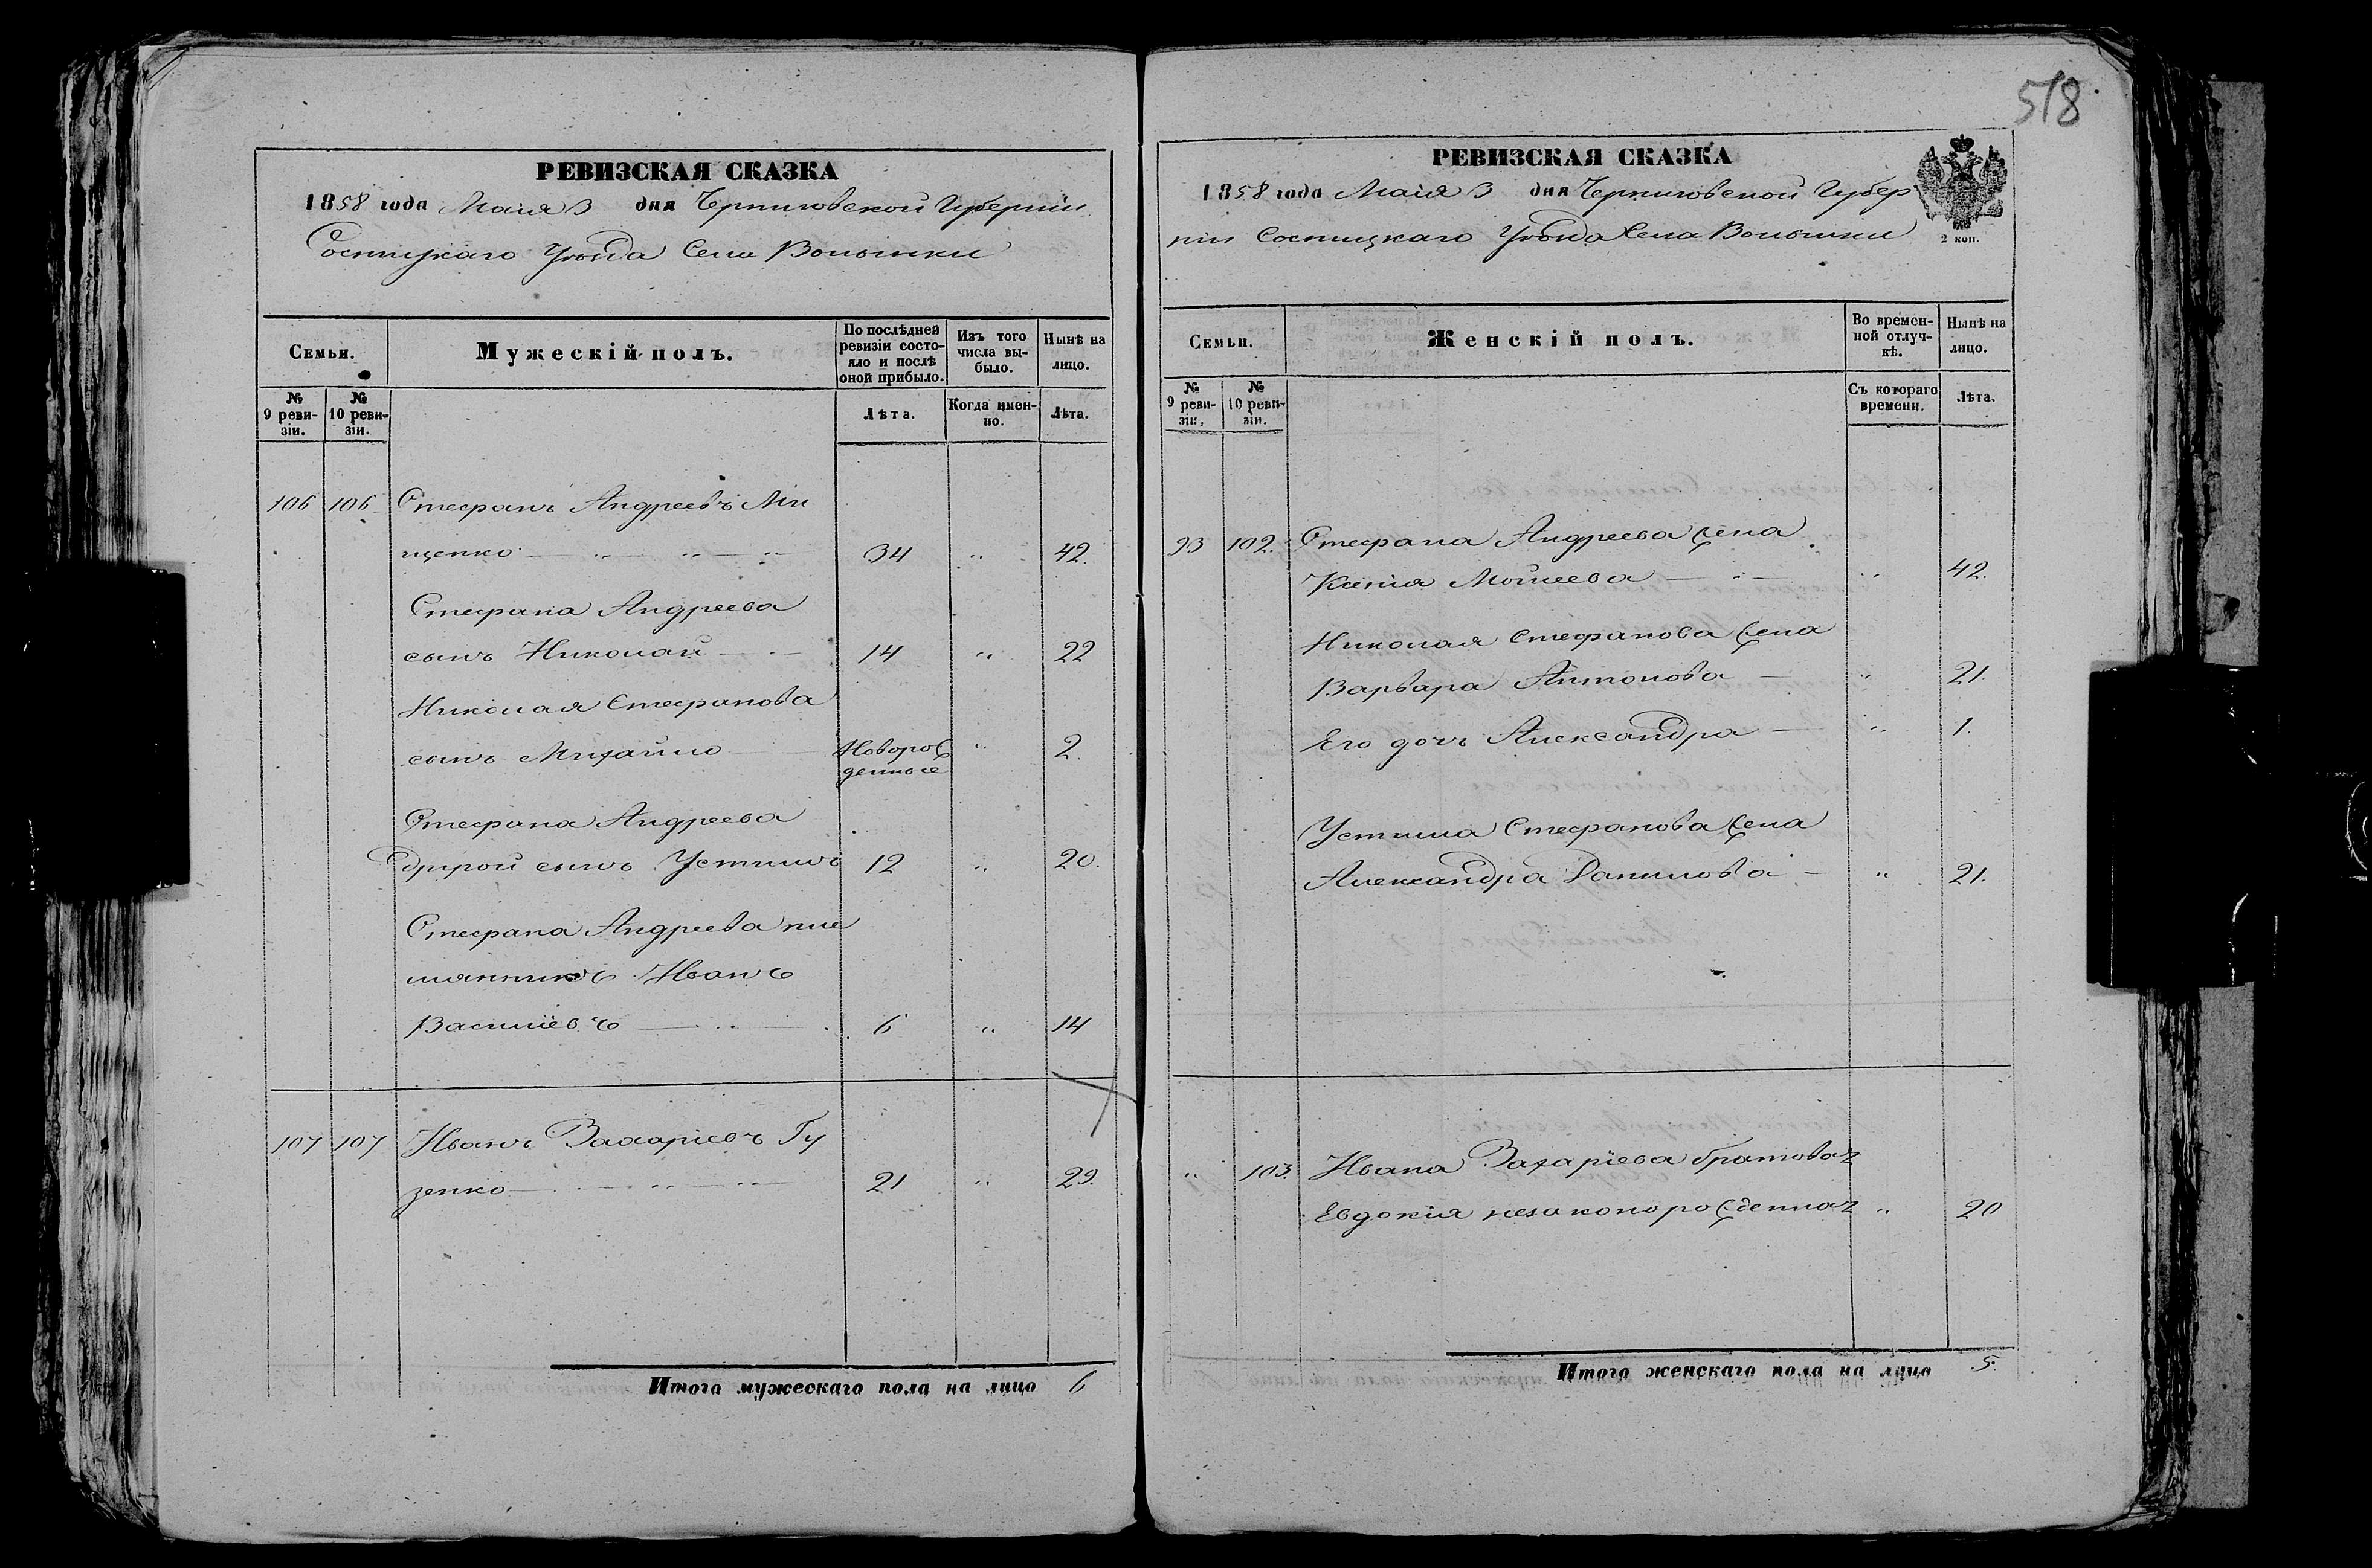 518
РЕВИЗСКАЯ СКАЗКА
1858 года Маія 3 дня Черниговской Губерніи
Сосницкаго Уѣзда Села Волынки
Семьи.
Мужескій полъ.
По послѣдней ревизіи состояло и послѣ оной прибыло.
Изъ того числа выбыло.
Нынѣ на лицо.
№ 9 ревизіи.
№ 10 ревизіи.
Лѣта.
Когда именно.
Лѣта.
106 106 Стефанъ Андреевъ Ми
щенко 34 " 42.
Стефана Андреева
сынъ Николай 14 " 22
Николая Стефанова
сынъ Михайло Новорож " 2.
денные
Стефана Андреева
другой сынъ Устимъ 12 " 20.
Стефана Андреева пле
мянникъ Иванъ
Василіевъ 6 " 14
107 107 Иванъ Захаріевъ Гу
зенко 21 " 29.
Итого мужескаго пола на лицо 6
РЕВИЗСКАЯ СКАЗКА
1858 года Маія 3 дня Черниговской Губер
ніи Сосницкаго Уѣзда Села Волынки
2 коп.
Семьи.
Женскій полъ.
Во временной отлучкѣ.
Нынѣ на лицо.
№ 9 ревизіи.
№ 10 ревизіи.
Съ котораго времени.
Лѣта.
93 102. Стефана Андреева жена
Ксенія Мойсеева " 42.
Николая Стефанова жена
Варвара Антонова " 21.
Его дочь Александра " 1.
Устима Стефанова жена
Александра Данилова " 21.
" 103. Ивана Захаріева братова
Евдокія незаконорожденная " 20
Итого женскаго пола на лицо 5.